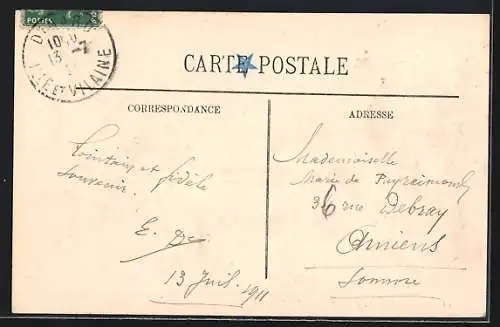 POSTES
ILLE ET VILAINE
CARTE POSTALE
CORRESPONDANCE
ADRESSE
Lointain et fidèle
souvenir.
13 Juil. 1911
Mademoiselle
Marie de Puyraimond
36 rue Debray
Amiens
Somme